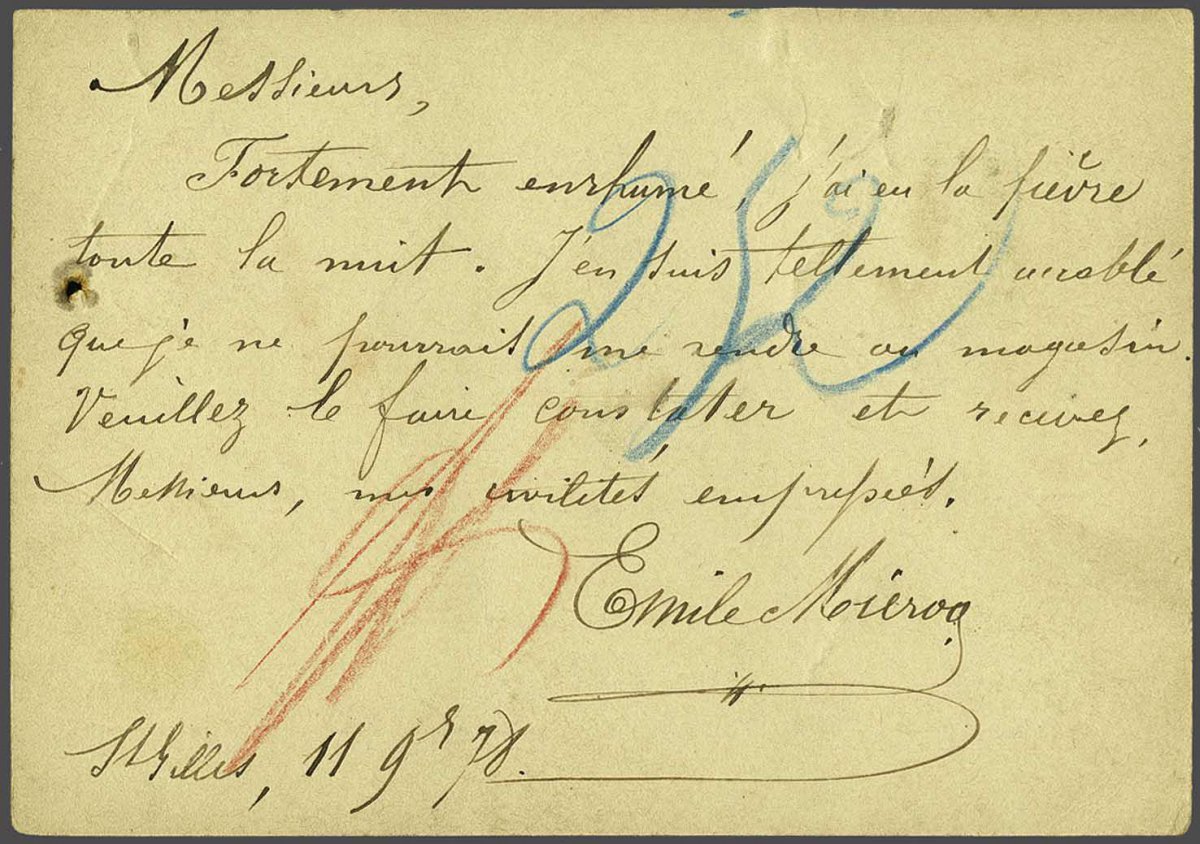 Messieurs,
Fortement enrhumé, j'ai eu la fièvre
toute la nuit. J'en suis tellement accablé
que je ne pourrais me rendre au magasin.
Veuillez le faire constater et recevez,
Messieurs, mes civilités empressées.
Emile
St Gilles, 11 9r 78.
252